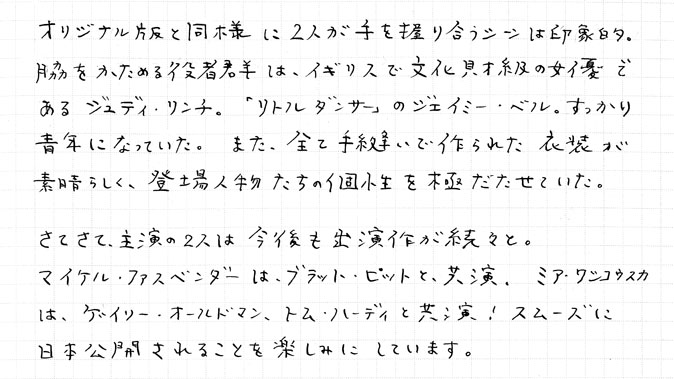 オリジナル版と同様に2人が手を握り合うシーンは印象的。
脇をかためる役者群は、イギリスで文化財級の女優で
あるジュディ・リンチ。「リトルダンサー」のジェイミー・ベル。すっかり
青年になっていた。また、全て手縫いで作られた衣装が
素晴らしく、登場人物たちの個性を極だたせていた。
さてさて、主演の2人は今後も出演作が続々と。
マイケル・ファスベンダーは、ブラット・ピットと、共演。ミア・ワシコウスカ
は、ゲイリー・オールドマン、トム・ハーディと共演!スムーズに
日本公開されることを楽しみにしています。